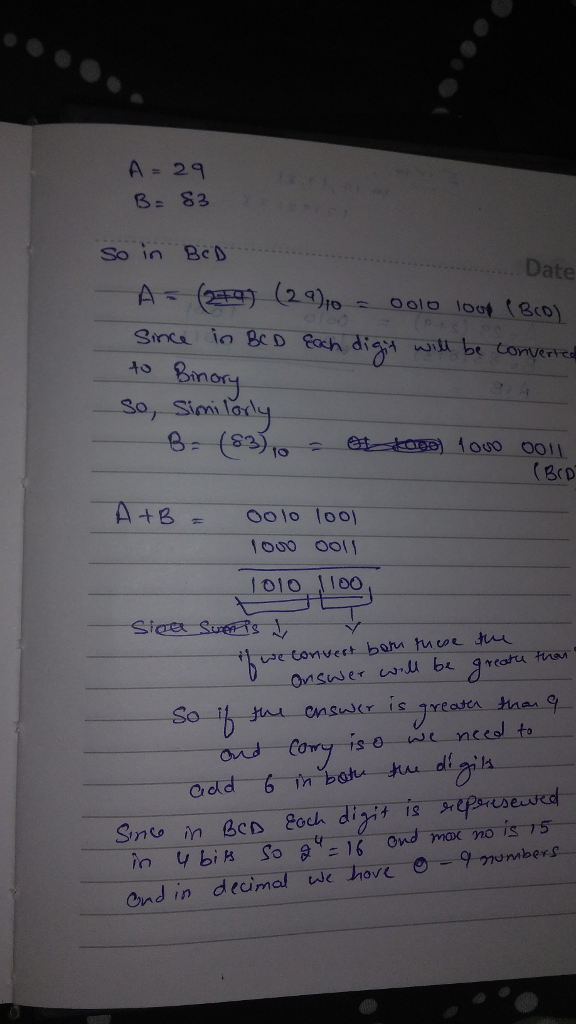 A = 29
B = 83
So in BCD
Date
A = (2+9) (29)10 = 0010 1001 (BCD)
Since in BCD Each digit will be converted
to Binary
So, Similarly
B = (83)10 = 1000 0011
(BCD
A + B = 0010 1001
1000 0011
1010 1100
if we convert both these the
answer will be greater than
So if the answer is greater than 9
and Carry is 0 we need to
add 6 in both the digits
Since in BCD Each digit is represented
in 4 bits So 2^4 = 16 and max no is 15
and in decimal we have 0 - 9 numbers